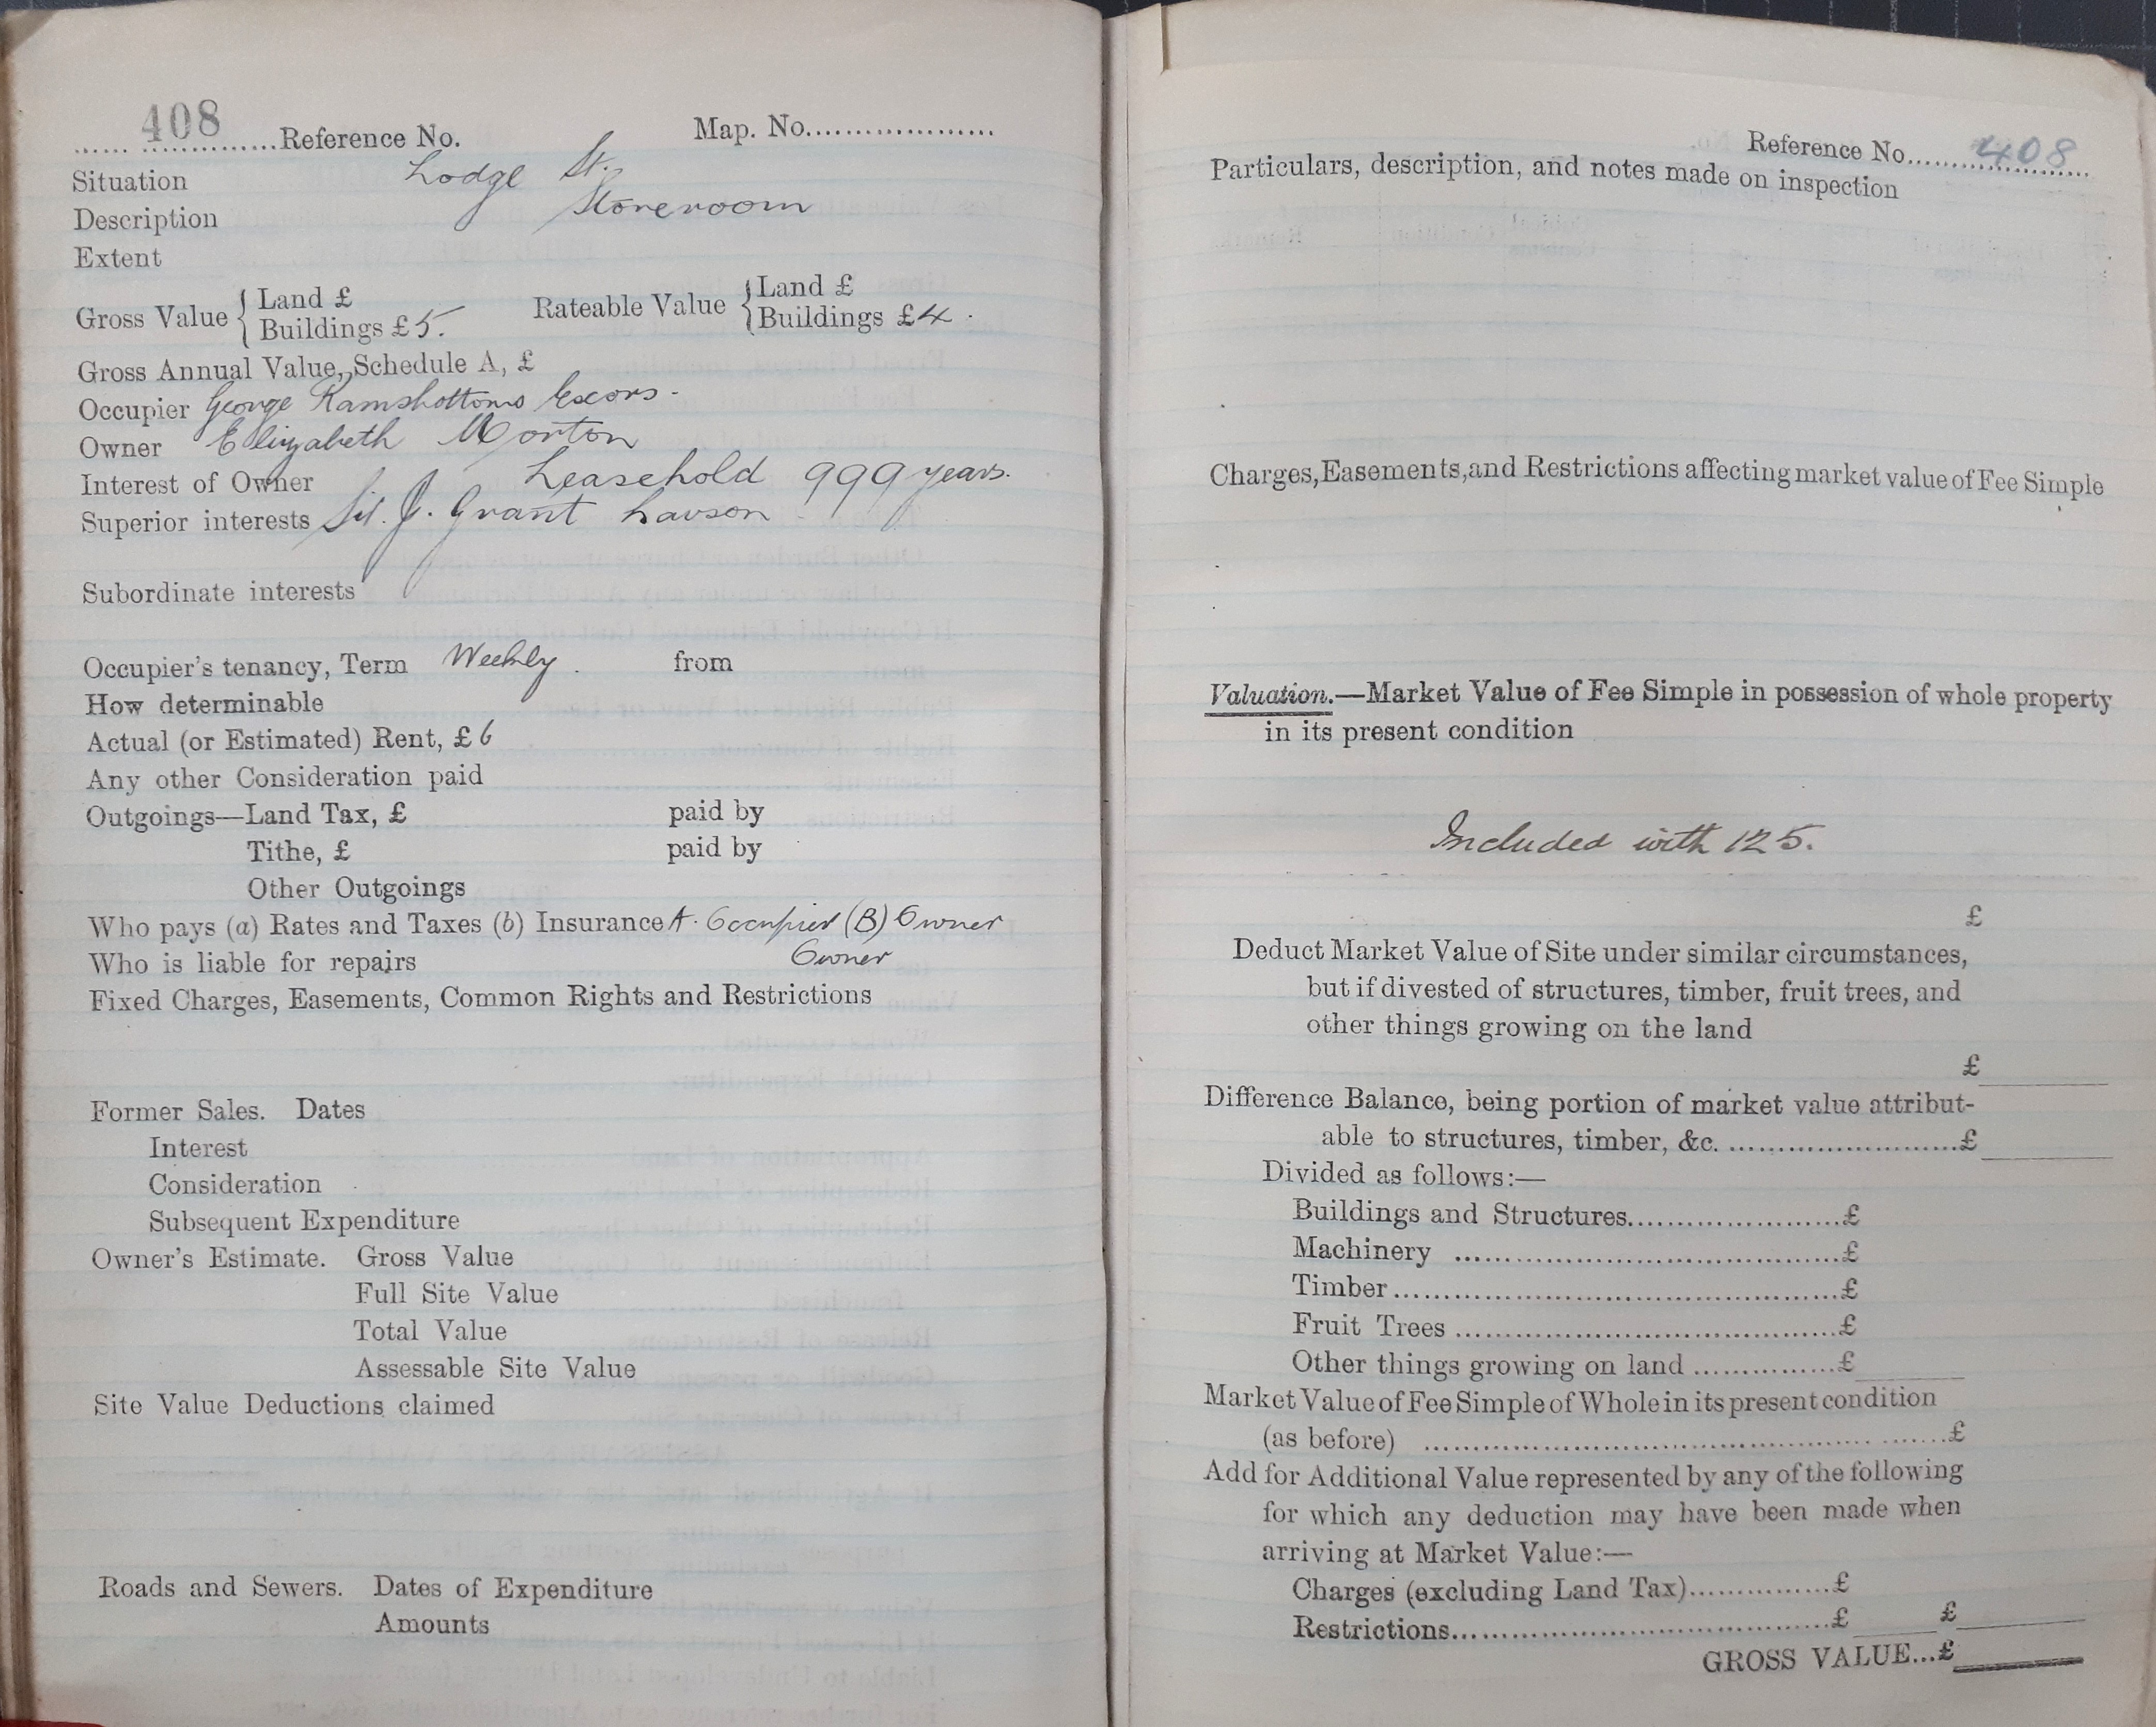 408 Reference No. Map. No.
Situation Lodge St.
Description Storeroom
Extent
Gross Value { Land £ Rateable Value { Land £
Buildings £ 5. Buildings £ 4.
Gross Annual Value, Schedule A, £
Occupier George Ramsbottoms Excors.
Owner Elizabeth Morton
Interest of Owner Leasehold 999 years.
Superior interests Sir. J. Grant Lawson
Subordinate interests
Occupier's tenancy, Term Weekly. from
How determinable
Actual (or Estimated) Rent, £ 6
Any other Consideration paid
Outgoings—Land Tax, £ paid by
Tithe, £ paid by
Other Outgoings
Who pays (a) Rates and Taxes (b) Insurance A. Occupier (B) Owner
Who is liable for repairs Owner
Fixed Charges, Easements, Common Rights and Restrictions
Former Sales. Dates
Interest
Consideration
Subsequent Expenditure
Owner's Estimate. Gross Value
Full Site Value
Total Value
Assessable Site Value
Site Value Deductions claimed
Roads and Sewers. Dates of Expenditure
Amounts
Reference No. 408
Particulars, description, and notes made on inspection
Charges, Easements, and Restrictions affecting market value of Fee Simple
Valuation.—Market Value of Fee Simple in possession of whole property
in its present condition
Included with 125.
£
Deduct Market Value of Site under similar circumstances,
but if divested of structures, timber, fruit trees, and
other things growing on the land
£
Difference Balance, being portion of market value attribut-
able to structures, timber, &c. £
Divided as follows:—
Buildings and Structures £
Machinery £
Timber £
Fruit Trees £
Other things growing on land £
Market Value of Fee Simple of Whole in its present condition
(as before) £
Add for Additional Value represented by any of the following
for which any deduction may have been made when
arriving at Market Value:—
Charges (excluding Land Tax) £
Restrictions £ £
GROSS VALUE...£